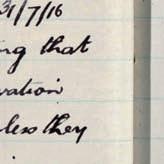 31/7/16
ng that
vation
less they